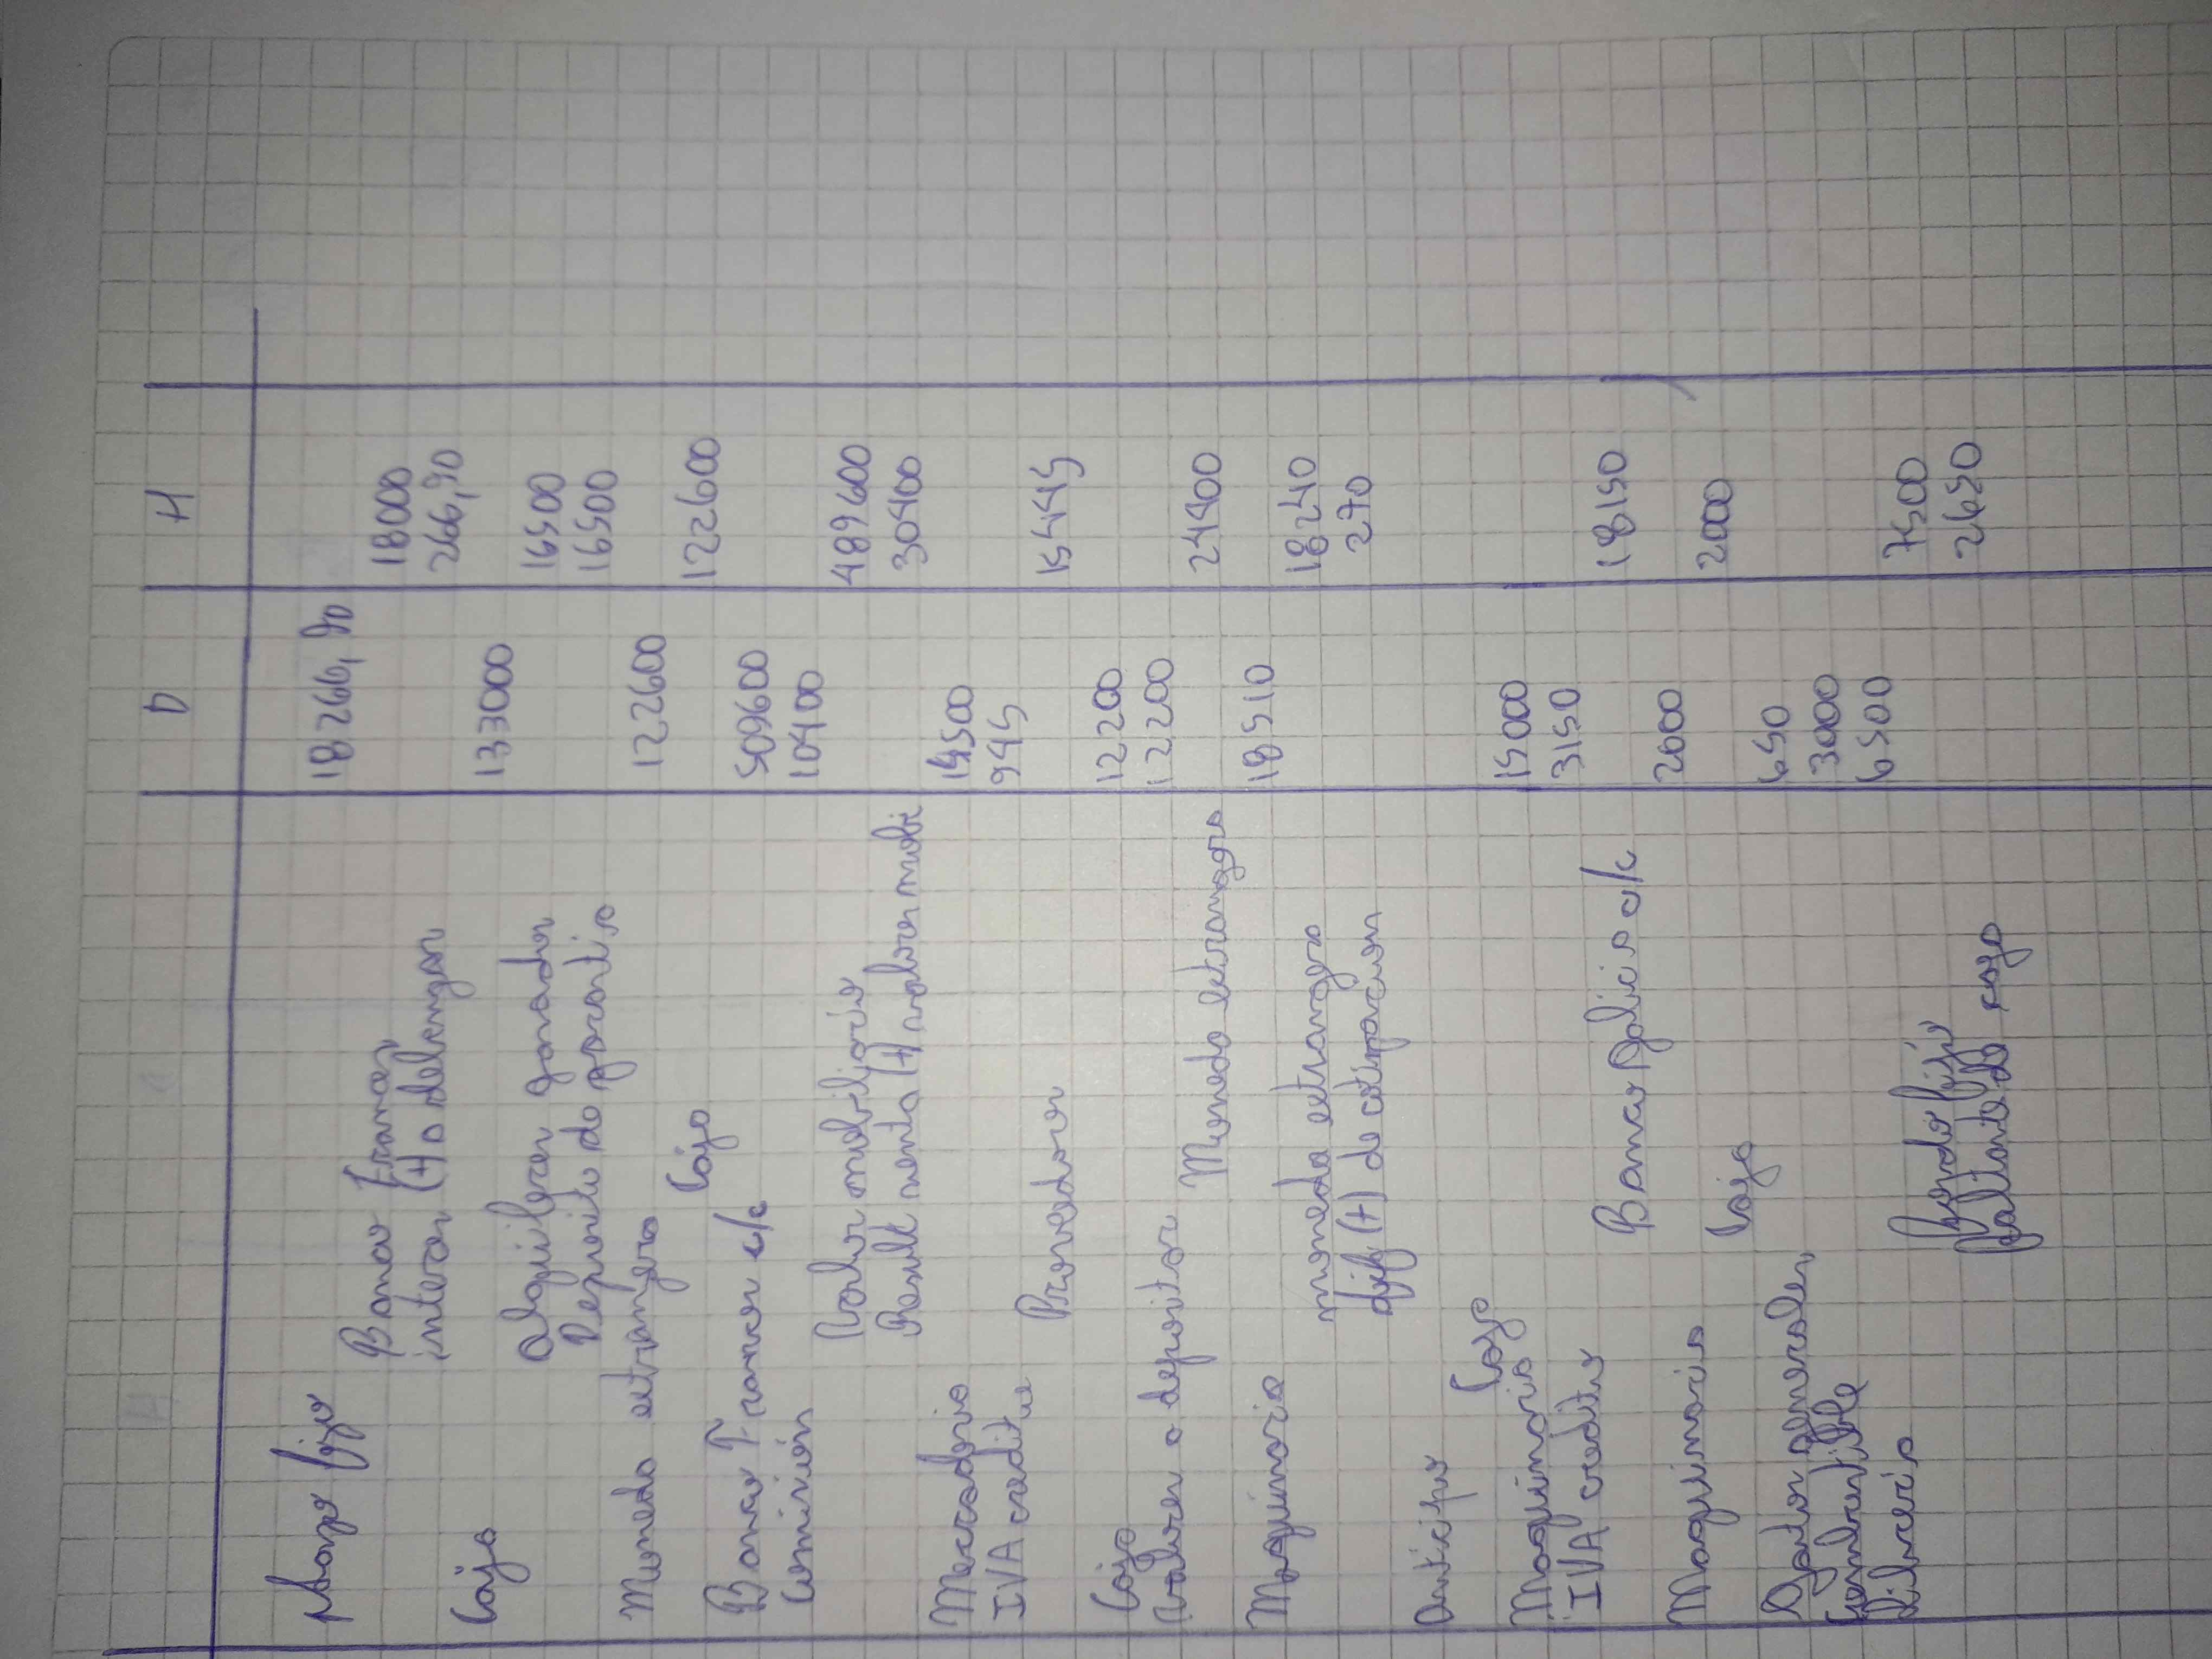 D H
plazo fijo 18266,90
Banco Frances 18000
interes (+) a devengar 266,90
Caja 133000
alquileres ganados 16500
Deposito de garantia 16500
Moneda extranjera 122600
Caja 122600
Banco Frances c/c 509600
Comisión 10400
Valor mobiliario 489600
Result venta (+) valores mobi 30400
Mercaderia 14500
IVA credito 945
Proveedores 15445
Caja 12200
Valores a depositar 12200
Moneda extrangera 24400
Maquinaria 18510
moneda extrangera 18240
dif (+) de cotizacion 270
Anticipo
Caja
Maquinaria 15000
IVA credito 3150
Banco Galicia c/c 18150
Maquinaria 2000
Caja 2000
Gastos generales, 650
Combustible 3000
Libreria 6500
fondo fijo 7500
faltante de caja 2650